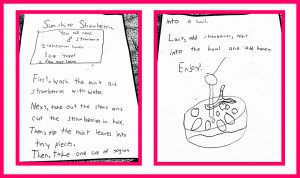 Sunshine Strawberries
You will need
8 strawberries
2 tablespoons honey
1 cup yogurt
mint leaves
First, wash the mint and
strawberries with water.
Next, take out the stems and
cut the strawberries in half.
Then, rip the mint leaves into
tiny pieces.
Then, take one cup of yogurt
into a bowl.
Last, add strawberries, mint
into the bowl and add honey.
Enjoy!